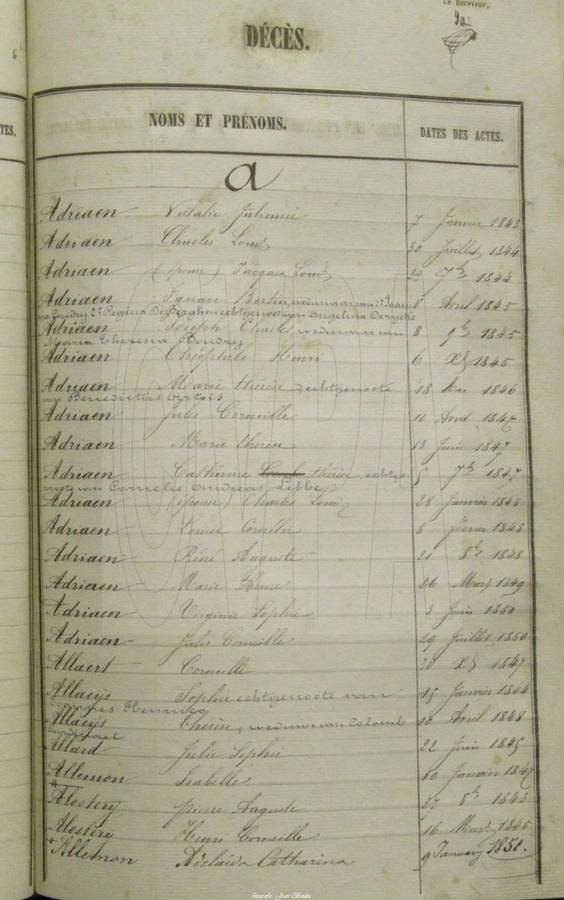 DÉCÈS.
NOMS ET PRÉNOMS. DATES DES ACTES.
a
Adriaen Natalie Julienne 7 Janvier 1843
Adriaen Charles Louis 30 Juillet 1844
Adriaen (épouse) Jacques Louis 23 7bre 1844
Adriaen Ignace Bertin, weduwaar van 1° Joanna Avril 1845
Regina De echtgenoot van Angelina Deryche
Adriaen Joseph Charle weduwnaar van 8 9bre 1845
Maria Theresia Boudry
Adriaen Théophile Henri 6 Xbre 1845
Adriaen Marie thérèse, echtgenoote 18 Mai 1846
van Benedictus Ostois
Adriaen Jules Corneille 11 Avril 1847
Adriaen Marie thérèse 13 Juin 1847
Adriaen Catherine thérèse, echtge 5 7bre 1847
noote van Cornelis Andreas Libbe
Adriaen (épouse) Charles Louis 28 Janvier 1848
Adriaen Louise 8 février 1848
Adriaen Réné Auguste 21 8bre 1848
Adriaen Marie 26 Mars 1849
Adriaen Virginie Sophie 3 Juin 1850
Adriaen Jules Corneille 29 Juillet 1850
Allaert Corneille 20 Xbre 1847
Allaeijs Sophie echtgenoote van 15 Janvier 1844
Hennicq
Allaeijs thérèse, weduwe van Colomb 16 Avril 1848
Allard Julie Sophie 22 Juin 1845
Allemon Isabelle 10 Janvier 1847
Alestery pierre Auguste 27 8bre 1843
Alestery Henri Corneille 16 Mars 1845
Allemon Adelaïda Catharina 9 January 1851.